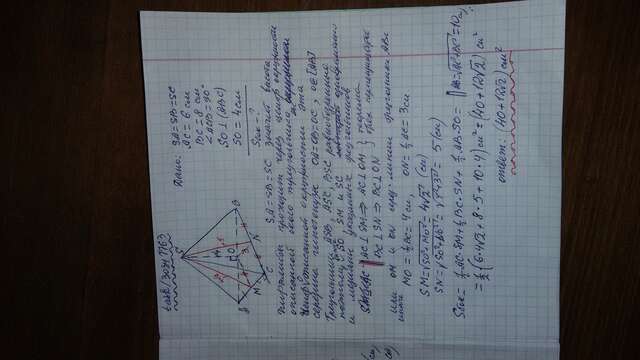 task/30317763
Дано: SA=SB=SC
AC = 6 см
BC = 8 см
∠ACB = 90°
SO ⊥ (ABC)
SO = 4 см
Sбок - ?
S
A
B
C
M
N
O
SA=SB=SC значит высота
пирамиды проходит через центр окружности
описанной около треугольника
Центр описанной окружности это
середина гипотенузы OA=OB=OC, O∈[AB]
Треугольники ASB, ASC, BSC равнобедренные
поэтому SO, SM и SC одновременно
и медианы указанных треугольников
AC ⊥ SM ⇒ AC ⊥ OM } теорема
BC ⊥ SN ⇒ BC ⊥ ON } трех перпендикуляров
или OM и ON сред. линии треугольника ABC
иначе
MO = ½BC = 4 см, ON = ½AC = 3 см
SM = √SO²+MO² = 4√2 (см)
SN = = √4²+3² = 5 (см)
Sбок = ½AC·SM + ½BC·SN + ½AB·SO = ‖AB=√AC²+BC²=10см
= ½(6·4√2 + 8·5 + 10·4) см² = (40+12√2) см²
ответ: (40+12√2) см²